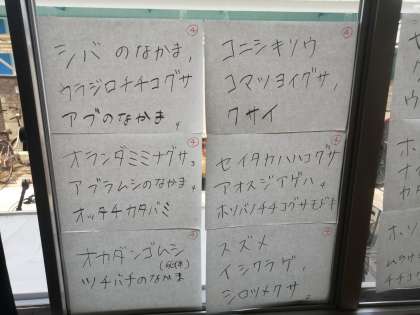 ④
シバのなかま,
ウラジロチチコグサ
アブのなかま 4
④
コニシキソウ
コマツヨイグサ,
クサイ
オランダミミナグサ 3
アブラムシのなかま 4
オッタチカタバミ
セイタカハハコグサ
アオスジアゲハ 4
ホソバノチチコグサモドキ
オカダンゴムシ
(死体)
ツチバチのなかま
スズメ
イシクラゲ,
シロツメクサ 2